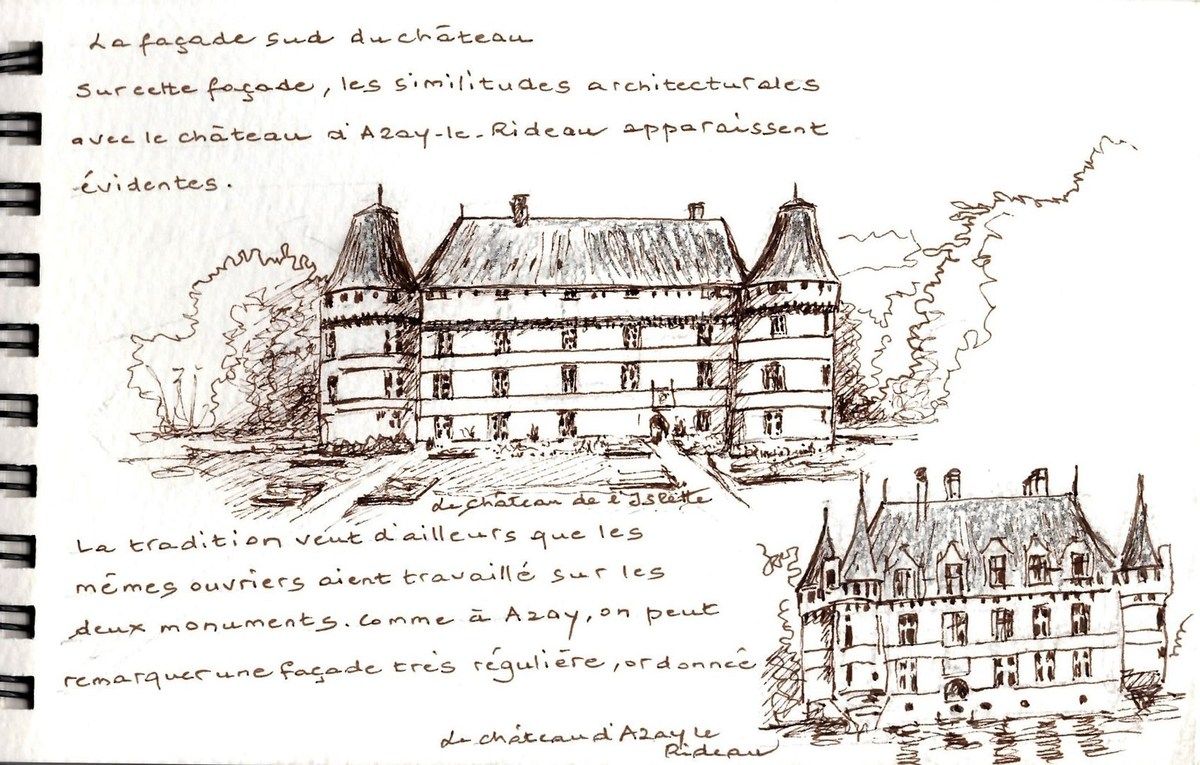 La façade sud du château
Sur cette façade, les similitudes architecturales
avec le château d'Azay-le-Rideau apparaissent
évidentes.
Le château de l'Islette
La tradition veut d'ailleurs que les
mêmes ouvriers aient travaillé sur les
deux monuments. Comme à Azay, on peut
remarquer une façade très régulière, ordonnée
Le château d'Azay le
Rideau